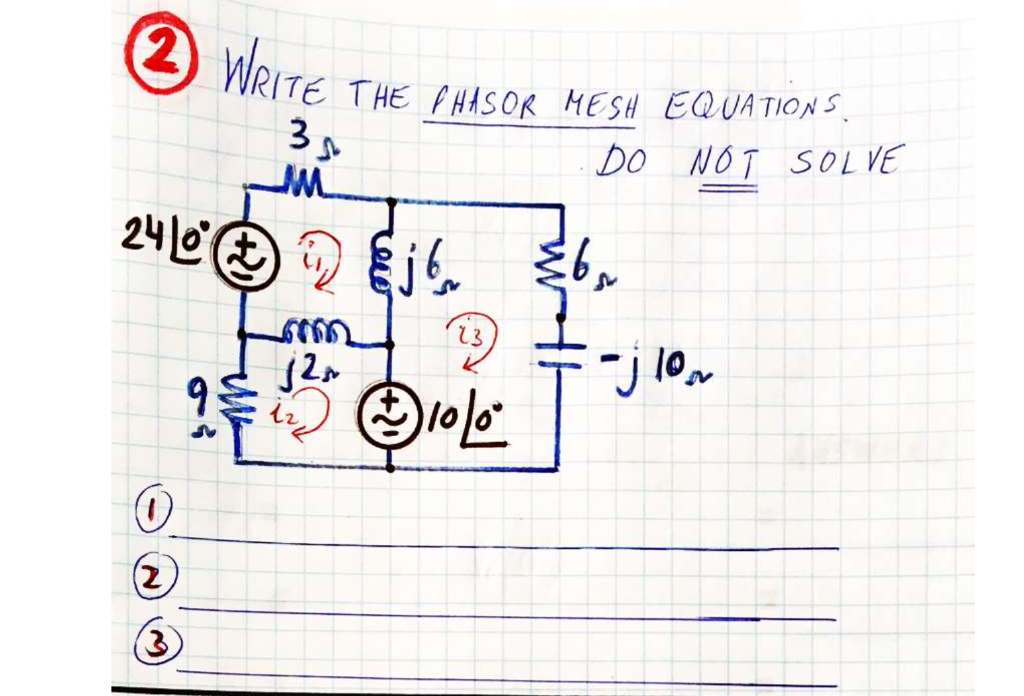 2 WRITE THE PHASOR MESH EQUATIONS.
DO NOT SOLVE
3Ω
24∠0°
+
~
-
i1
j6Ω
6Ω
i3
j2Ω
-j10Ω
9Ω
i2
+
~
-
10∠0°
1
2
3